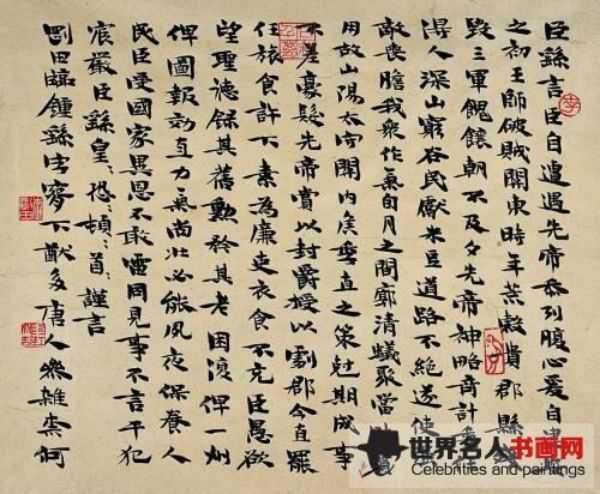 臣繇言臣自遭遇先帝忝列腹心爰自建
之初王師破賊關東時年荒穀貴郡縣殘
毀三軍餽饟朝不及夕先帝神略奇計委任
得人深山窮谷民獻米豆道路不絕遂使強
敵喪膽我眾作氣旬月之間廓清蟻聚當時實
用故山陽太守關內侯季直之策尅期成事
不差豪髮先帝賞以封爵授以劇郡今直罷
任旅食許下素為廉吏衣食不充臣愚欲
望聖德錄其舊勳矜其老困復俾一州
俾圖報效直力氣尚壯必能夙夜保養人
民臣受國家異恩不敢雷同見事不言干犯
宸嚴臣繇皇:恐:頓:首:謹言
田臨鍾繇下猷多唐人雜柰何
世界名人书画网
Celebrities and paintings